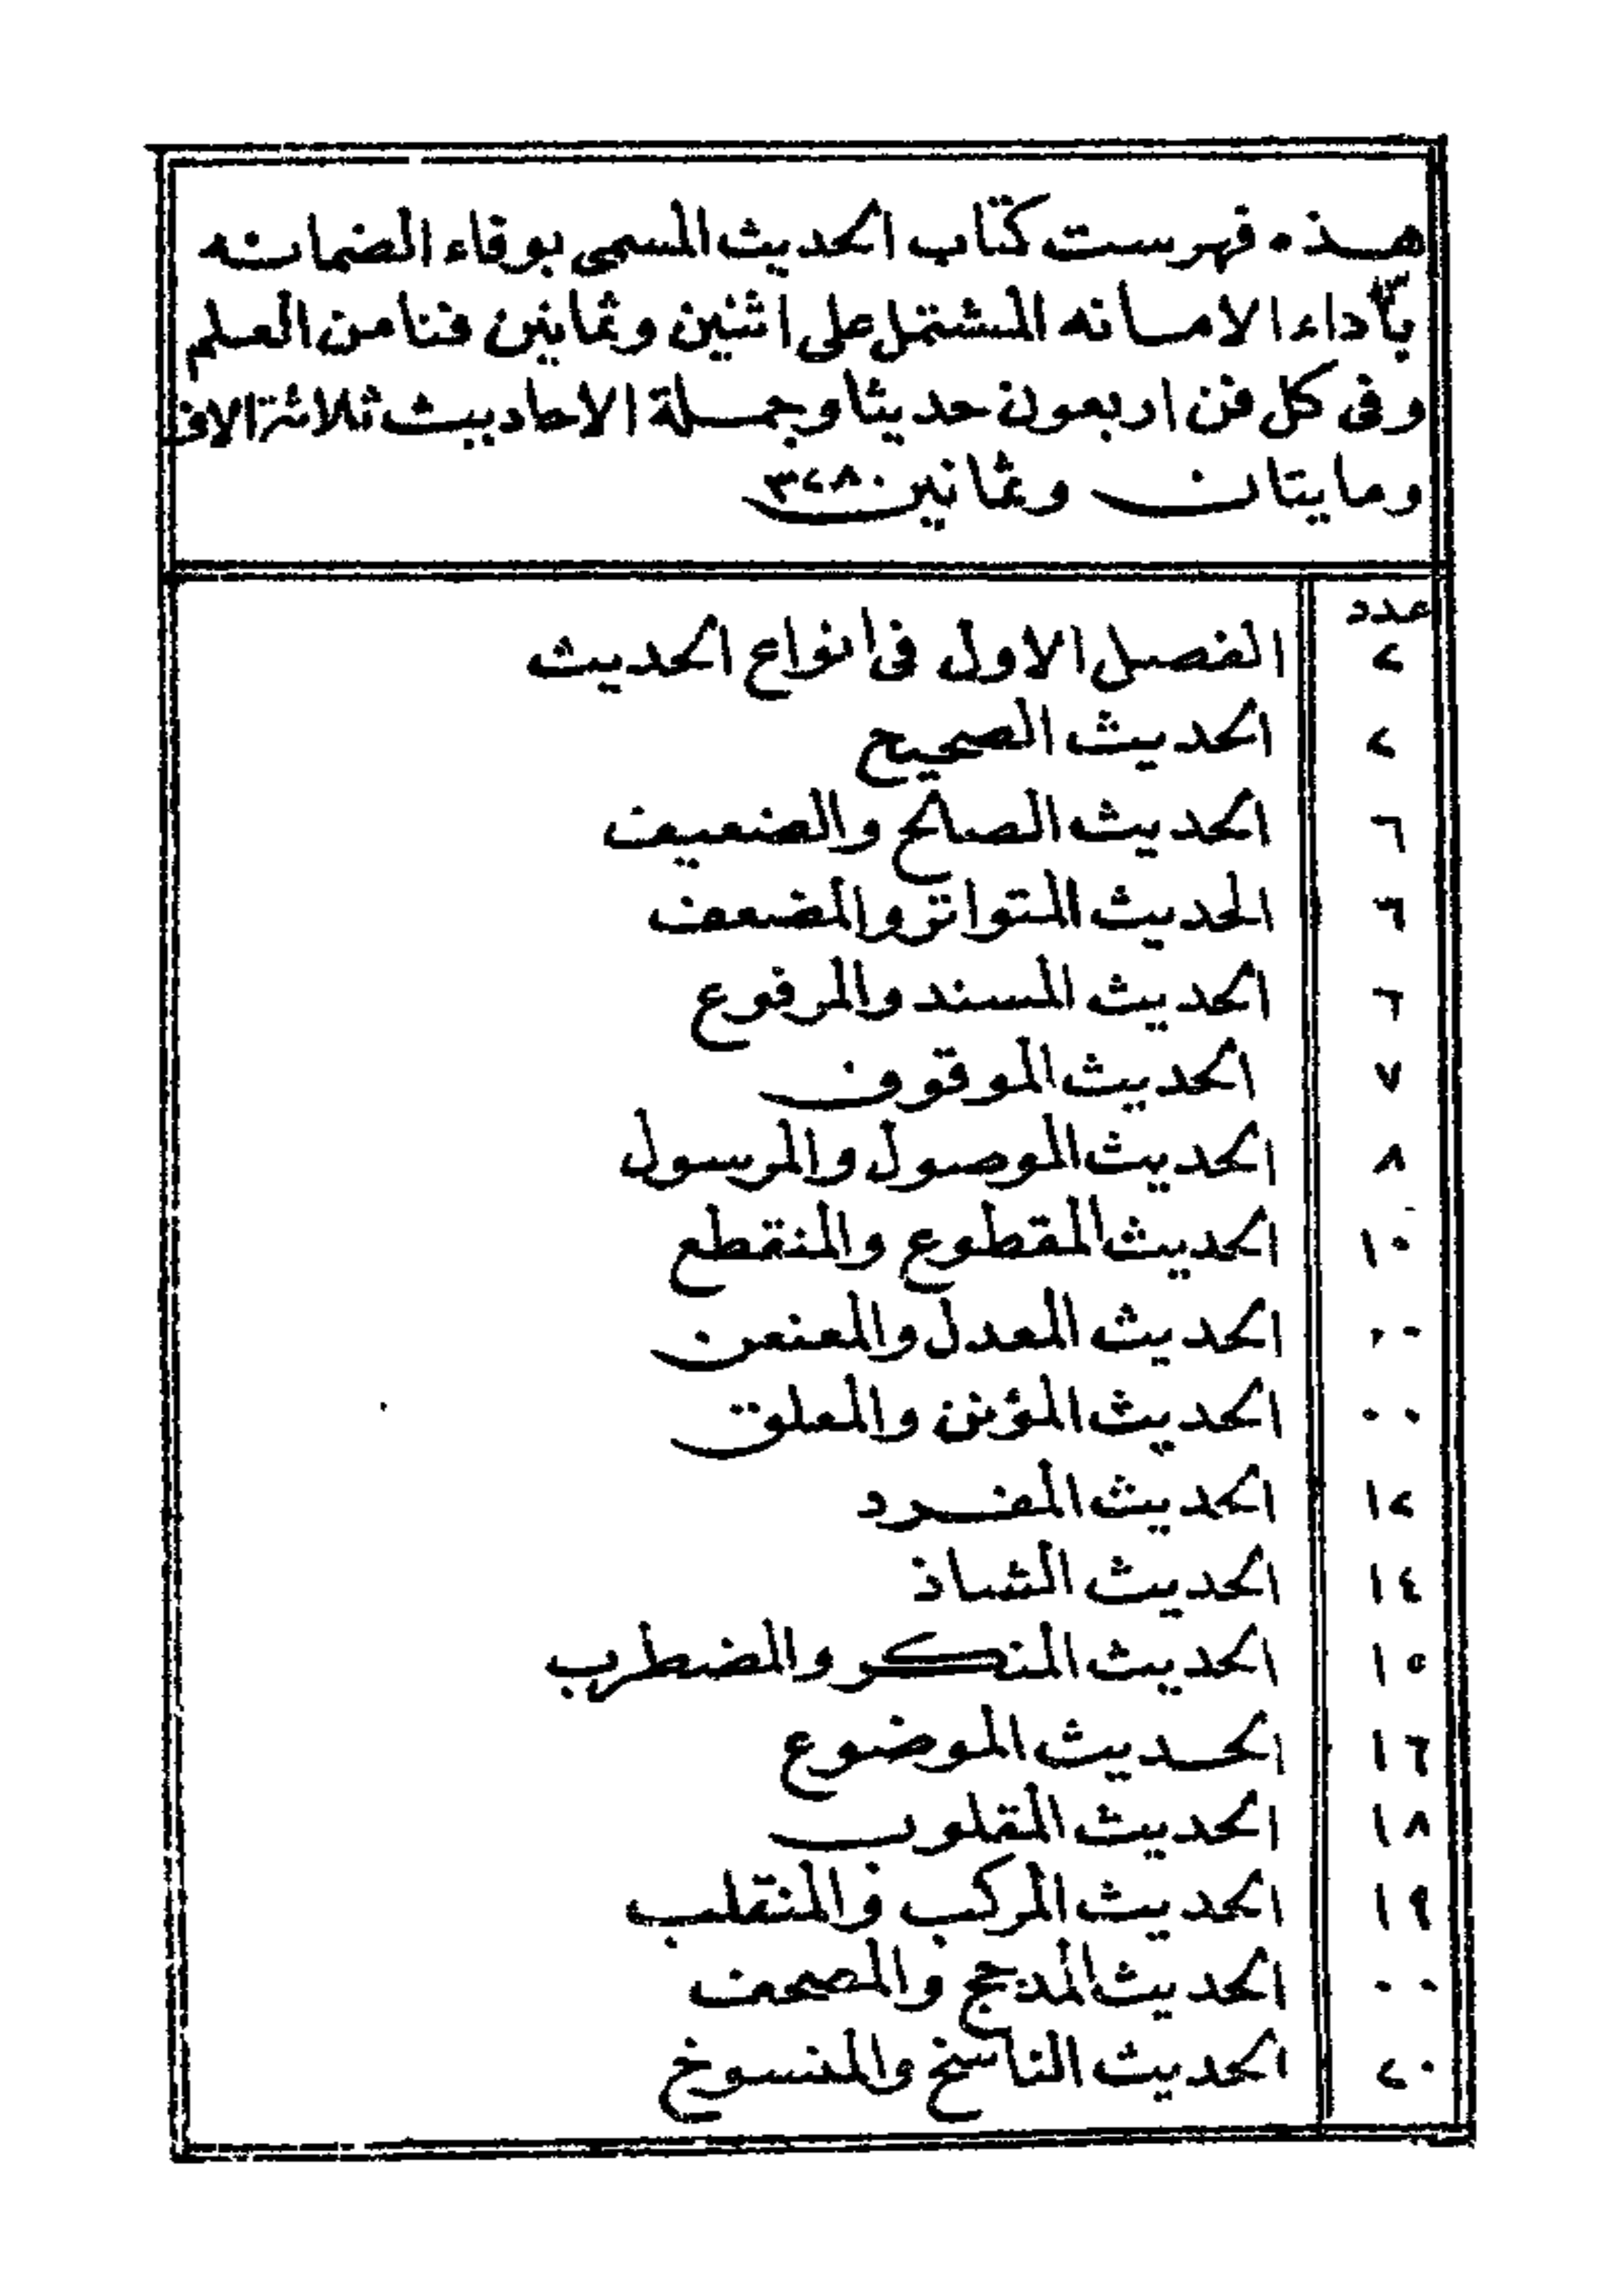 هذه فهرست كتاب الحديث المسمى بوفاء الضمانه
بأداء الامانه المشتمل على اثنين وثمانين فنا من العلم
وفى كل فن اربعون حديثا وجملة الاحاديث ثلاثة الاف
ومايتان وثمانين ٣٢٨٠
عدد
٢ الفصل الاول فى انواع الحديث
٢ الحديث الصحيح
٦ الحديث الصالح والضعيف
٦ الحديث المتواتر والمضعف
٦ الحديث المسند والمرفوع
٧ الحديث الموقوف
٨ الحديث الموصول والمرسول
١٠ الحديث المقطوع والمنقطع
٠٠ الحديث المعدل والمعنعن
٠٠ الحديث المؤنن والمعلق
١٢ الحديث المفرد
١٤ الحديث الشاذ
١٥ الحديث المنكر والمضطرب
١٦ الحديث الموضوع
١٨ الحديث المقلوب
١٩ الحديث المركب والمنقلب
٠٠ الحديث المدبج والمصحف
٢٠ الحديث الناسخ والمنسوخ